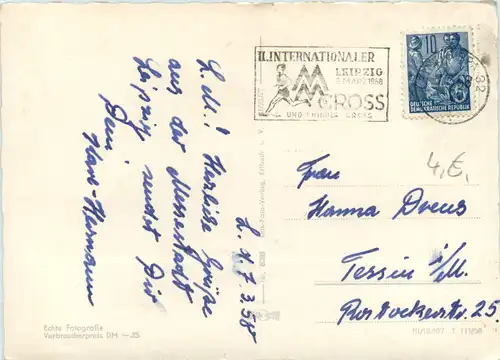 II. INTERNATIONALER
LEIPZIG
9. MÄRZ 1958
MM
CROSS
10
DEUTSCHE
DEMOKRATISCHE REPUBLIK
L. d. 7.3.58
L. M.! Herzliche Grüße
aus der Messestadt
Leipzig sendet Dir
Dein
Hans-Hermann
4,€,
Frau
Hanna Drews
Tessin i/M.
Rostockerstr. 25.
Echte Fotografie
Verbraucherpreis DM —.25